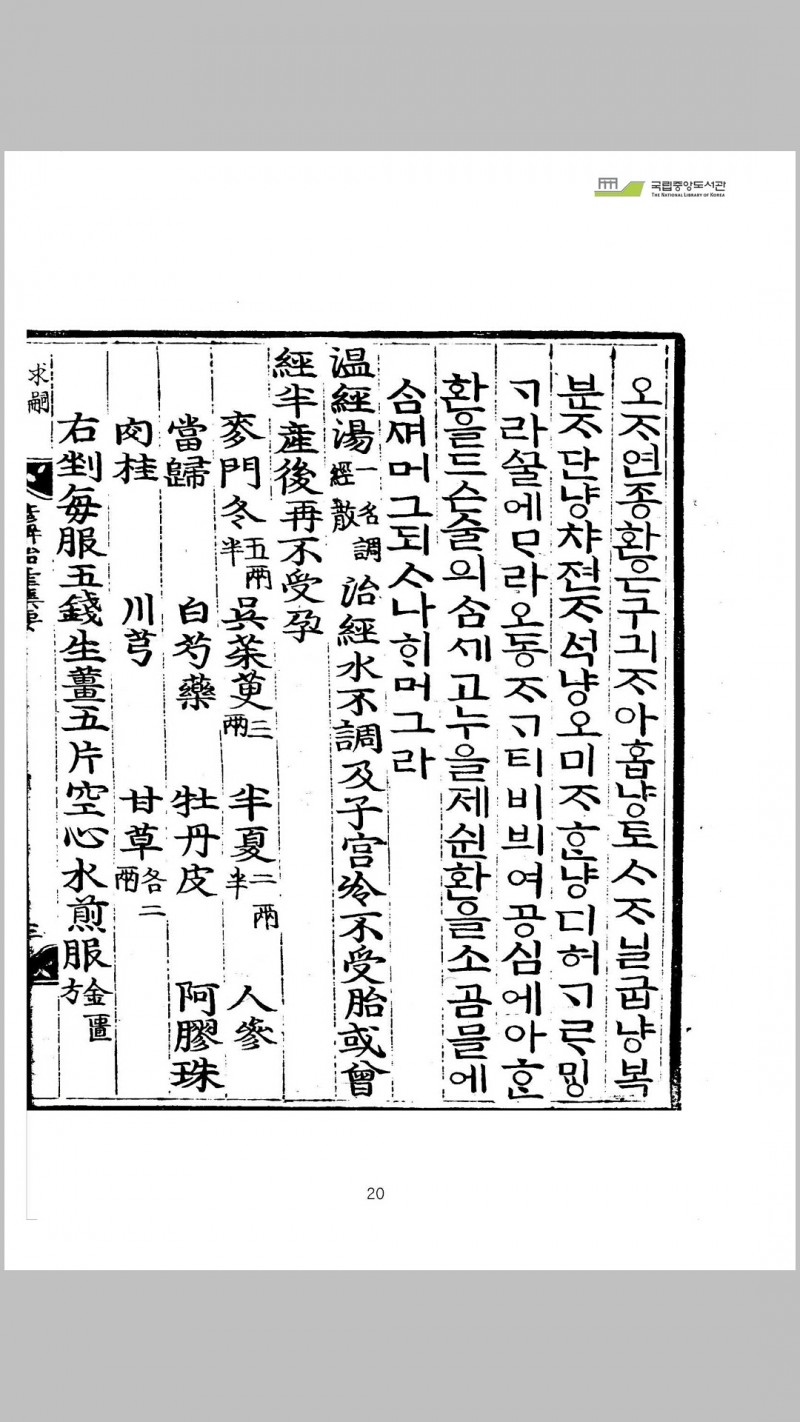 오ᄌᆞ연종환은구긔ᄌᆞ아홉냥토ᄉᆞᄌᆞ닐굽냥복
분ᄌᆞ단냥챠젼ᄌᆞ석냥오미ᄌᆞᄒᆞᆫ냥디허ᄀᆞᄅᆞᄆᆡᆼ
ᄀᆞ라ᄭᅮᆯ에ᄆᆞ라오동ᄌᆞᄀᆞ티비븨여공심에아ᄒᆞᆫ
환을ᄃᆞᄉᆞᆫ술의ᄉᆞᆷᄭᅵ고누을제쉰환을소곰믈에
ᄉᆞᆷᄭᅧ머그되ᄉᆞ나ᄒᆡ머그라
温經湯一名調經散 治經水不調及子宮冷不受胎或曾
經半産後再不受孕
麥門冬五兩半 吳茱萸三兩 半夏二兩半 人參
當歸 白芍藥 牡丹皮 阿膠珠
肉桂 川芎 甘草各二兩
右剉每服五錢生薑五片空心水煎服金匱方
求嗣
국립중앙도서관
THE NATIONAL LIBRARY OF KOREA
20